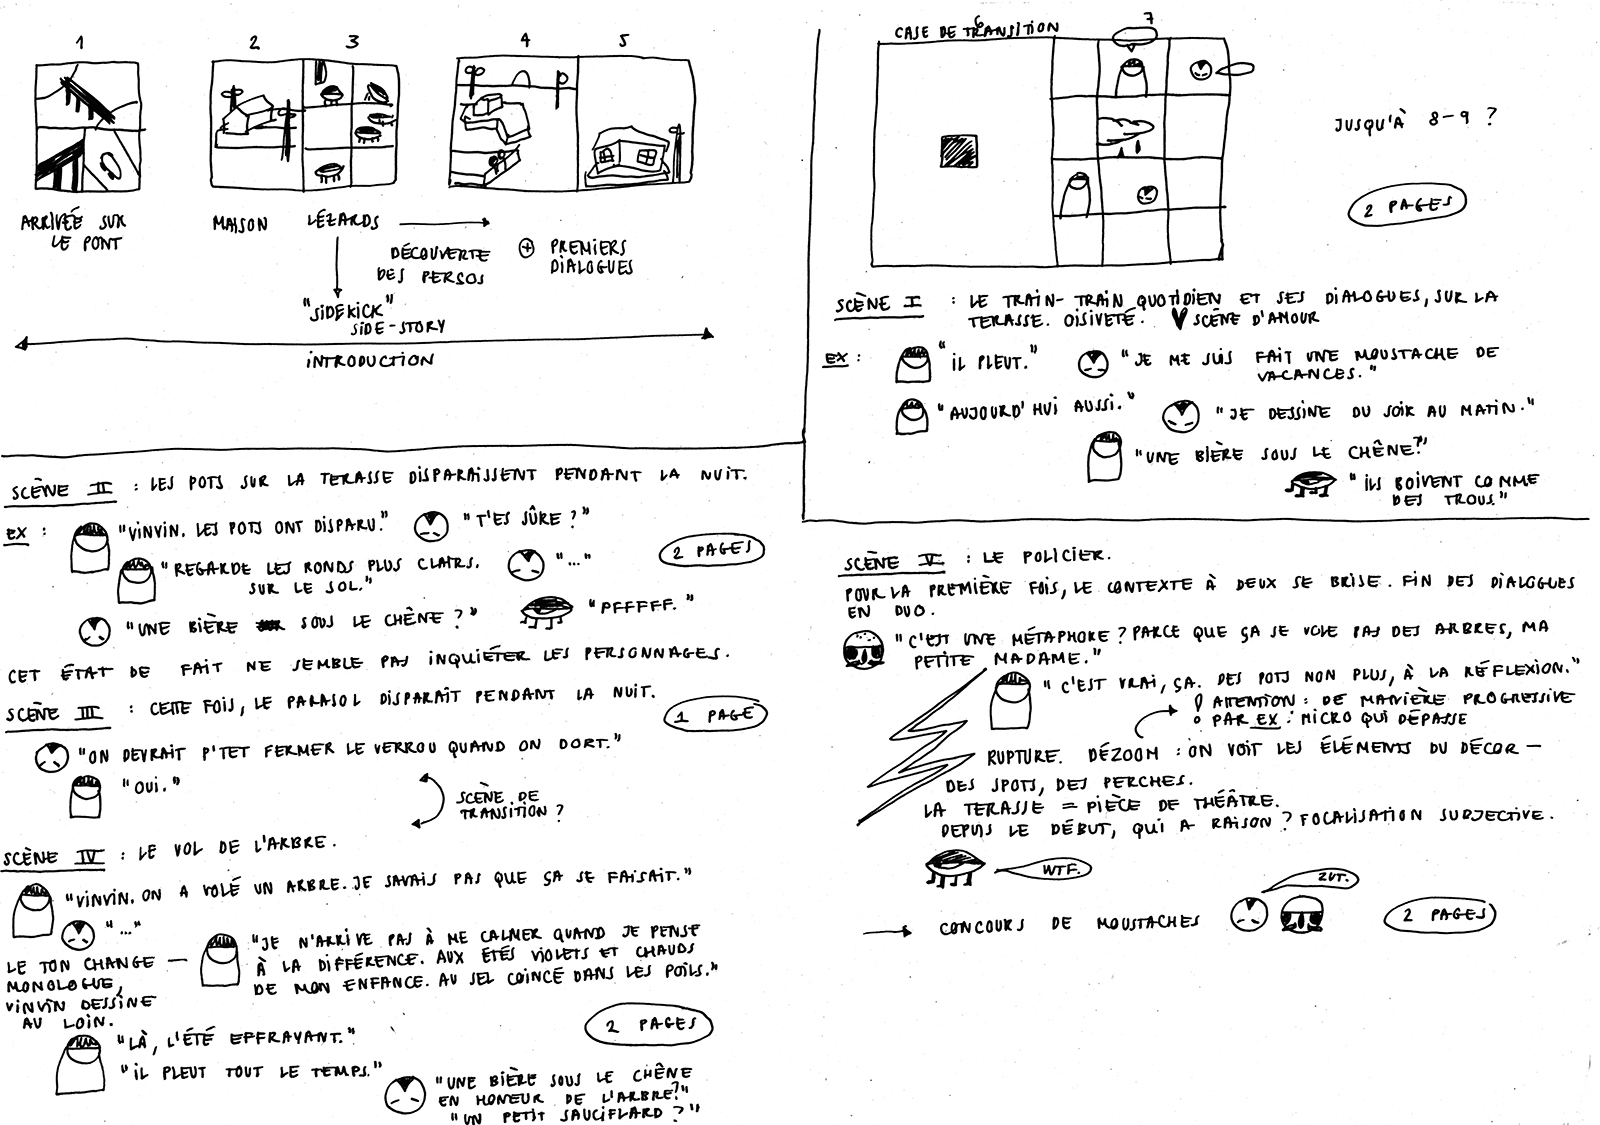 1
2
3
4
5
ARRIVÉE SUR
LE PONT
MAISON
LÉZARDS
DÉCOUVERTE
DES PERSOS
+ PREMIERS
DIALOGUES
"SIDEKICK"
SIDE-STORY
INTRODUCTION
CASE DE TRANSITION
6
7
JUSQU'À 8-9 ?
2 PAGES
SCÈNE I : LE TRAIN-TRAIN QUOTIDIEN ET SES DIALOGUES, SUR LA
TERASSE. OISIVETÉ. ♥ SCÈNE D'AMOUR
EX : "IL PLEUT." "JE ME SUIS FAIT UNE MOUSTACHE DE
VACANCES."
"AUJOURD'HUI AUSSI." "JE DESSINE DU SOIR AU MATIN."
"UNE BIÈRE SOUS LE CHÊNE?"
"ILS BOIVENT COMME
DES TROUS."
SCÈNE II : LES POTS SUR LA TERASSE DISPARAISSENT PENDANT LA NUIT.
EX : "VINVIN. LES POTS ONT DISPARU." "T'ES SÛRE ?"
2 PAGES
"REGARDE LES RONDS PLUS CLAIRS. "..."
SUR LE SOL."
"UNE BIÈRE SOUS LE CHÊNE ?" "PFFFFF."
CET ÉTAT DE FAIT NE SEMBLE PAS INQUIÉTER LES PERSONNAGES.
SCÈNE III : CETTE FOIS, LE PARASOL DISPARAÎT PENDANT LA NUIT.
1 PAGE
"ON DEVRAIT P'TET FERMER LE VERROU QUAND ON DORT."
"OUI."
SCÈNE DE
TRANSITION ?
SCÈNE IV : LE VOL DE L'ARBRE.
"VINVIN. ON A VOLÉ UN ARBRE. JE SAVAIS PAS QUE ÇA SE FAISAIT."
"..."
LE TON CHANGE —
MONOLOGUE,
VINVIN DESSINE
AU LOIN.
"JE N'ARRIVE PAS À ME CALMER QUAND JE PENSE
À LA DIFFÉRENCE. AUX ÉTÉS VIOLETS ET CHAUDS
DE MON ENFANCE. AU SEL COINCÉ DANS LES POILS."
2 PAGES
"LÀ, L'ÉTÉ EFFRAYANT."
"IL PLEUT TOUT LE TEMPS."
"UNE BIÈRE SOUS LE CHÊNE
EN HONEUR DE L'ARBRE?"
"UN PETIT SAUCIFLARD ?"
SCÈNE V : LE POLICIER.
POUR LA PREMIÈRE FOIS, LE CONTEXTE À DEUX SE BRISE. FIN DES DIALOGUES
EN DUO.
"C'EST UNE MÉTAPHORE ? PARCE QUE ÇA SE VOLE PAS DES ARBRES, MA
PETITE MADAME."
"C'EST VRAI, ÇA. DES POTS NON PLUS, À LA RÉFLEXION."
! ATTENTION : DE MANIÈRE PROGRESSIVE
PAR EX : MICRO QUI DÉPASSE
RUPTURE. DÉZOOM : ON VOIT LES ÉLÉMENTS DU DÉCOR —
DES SPOTS, DES PERCHES.
LA TERASSE = PIÈCE DE THÉÂTRE.
DEPUIS LE DÉBUT, QUI A RAISON ? FOCALISATION SUBJECTIVE.
WTF.
ZUT.
→ CONCOURS DE MOUSTACHES
2 PAGES